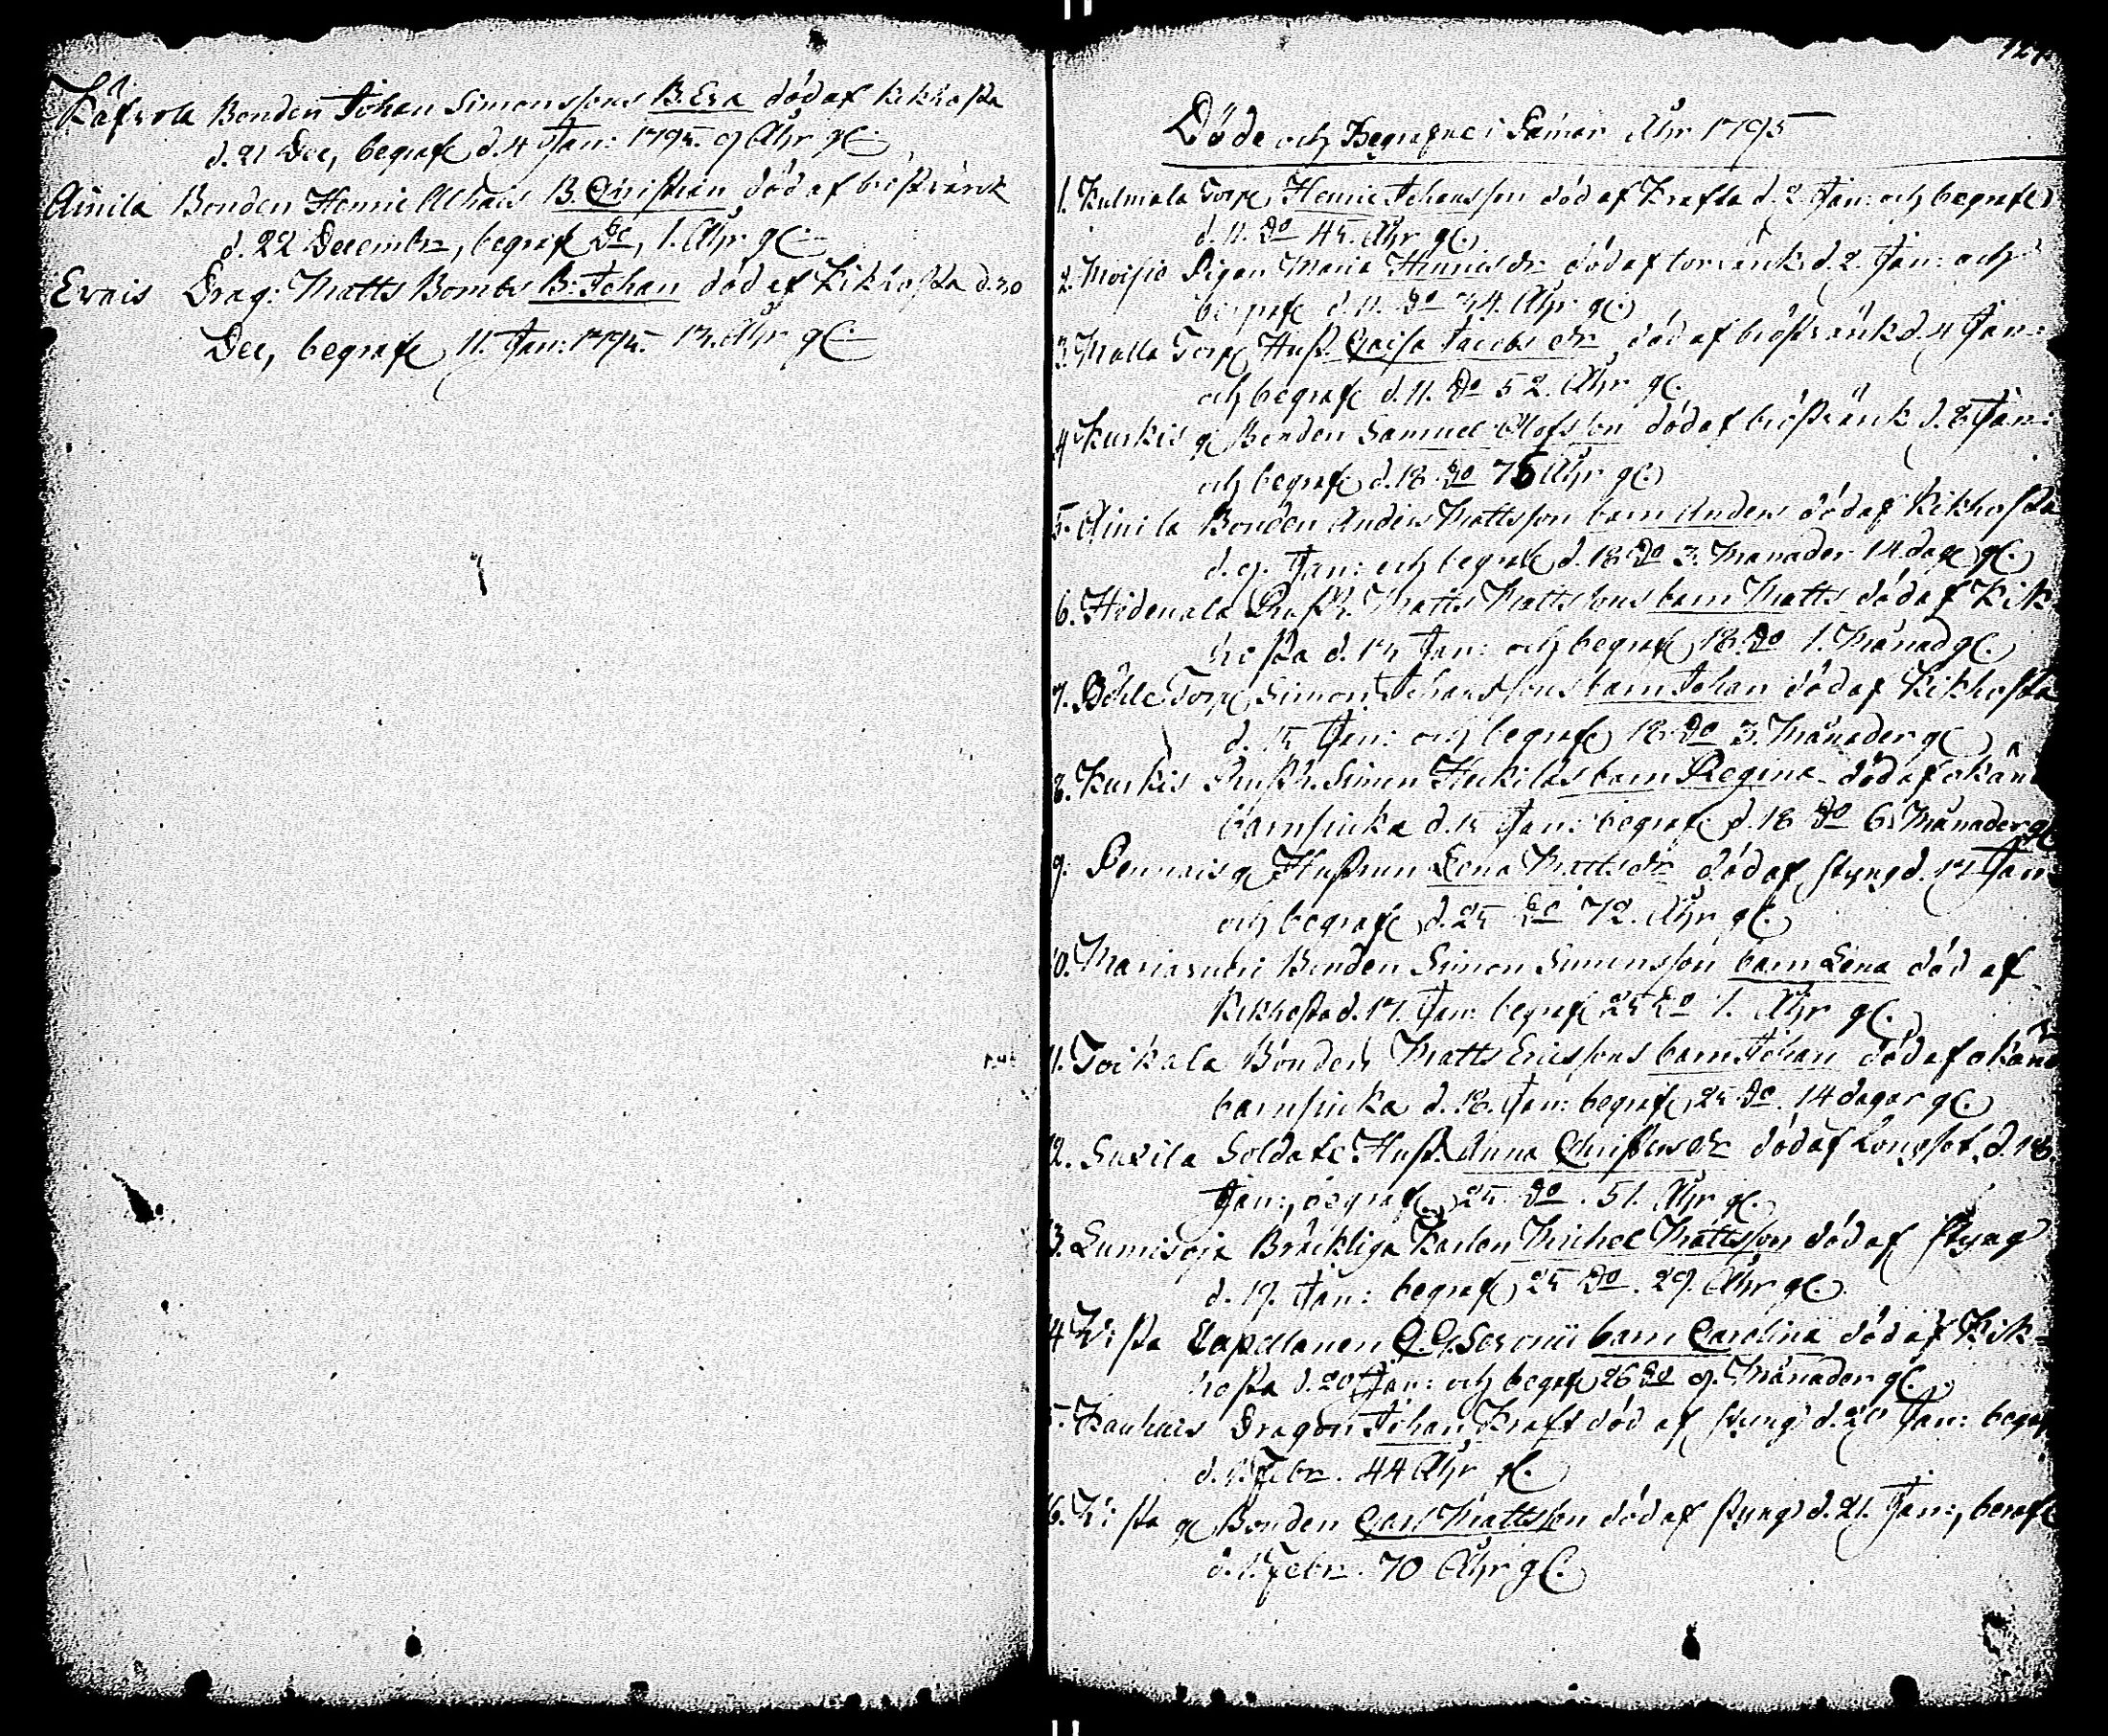 Bonden Johan Simonssons B. Eva död af kikhosta
d. 21 Dec, begrafe d. 4 Jan: 1795. 9 Åhr gl:
Ainila Bonden Henric Alhais B. Christian död af bröstvärck
d. 22 Decembr, begrafe do, 1. Åhr gl:
Evais Drag: Matts Bombs B: Johan död af Kikhosta d. 30
Dec, begrafe 11. Jan: 1795. Åhr gl:
Döde och Begrafne i Januar Åhr 1795
1. Kulmala Torp. Henric Johansson död af Krefta d. 2 Jan: och begrafe
d. 11. do 45. Åhr gl:
2. Moisio Pigan Maria Henricsdr död af torrvärk d. 2. Jan: och
begrafe d. 11. do Åhr gl:
3. Torp. Hust. Caisa Jacobsdr död af bröstvärk d. 4 Jan:
och begrafe d. 11. do 52. Åhr gl:
4 Kurkis gl Bonden Samuel Olofsson död af bröstvärk d. 8 Jan:
och begrafe d. 18. do 75 Åhr gl:
5. Ainila Bonden Anders Mattsson barn Anders död af Kikhosta
d. 9. Jan: och begrafe d. 18. do 3. Månader 14. dag gl:
6. Hidenala Matts Mattssons barn Matts död af Kik
hosta d. Jan: och begrafe 18. do 1. Månad gl:
7. Böhle Torp. Simon Johanssons barn Johan död af Kikhosta
d. 15 Jan: och begrafe 18. do 3. Månader gl:
8. Kurkis Simon Heikilas barn Regina död af okänd
barnsiuka d. 15 Jan: begrafe d. 18 do 6. Månader gl:
9. Pennais gl Hustrun Lena Mattsdr död af styng d. 17 Jan:
och begrafe d. 25 do 72. Åhr gl:
10. Bonden Simon Simonsson barn Lena död af
Kikhosta d. 17. Jan: begrafe 25 do 1. Åhr gl:
11. Toikala Bonden Matts Ericssons barn Johan död af okänd
barnsiuka d. 18. Jan: begrafe 25 do. 14 dagar gl:
12. Suxila Soldate Hust. Anna Christersdr död af Lungsot, d. 18.
Jan:, begrafe 25. do. 51. Åhr gl:
13. Lumisoja Bräckliga Karlen Michel Mattsson död af styng
d. 19. Jan: begrafe 25 do. 29. Åhr gl:
14 Capellanen barn Carolina död af Kik-
hosta d. 20 Jan: och begrafe 26 do 9. Månader gl:
Kauhais Dragon Johan Kraft död af styng d. 20 Jan: begraf
d. 1. Febr. 44 Åhr gl:
16. gl Bonden Carl Mattsson död af styng d. 21. Jan:, berafe
d. 1. Febr. 70 Åhr gl: